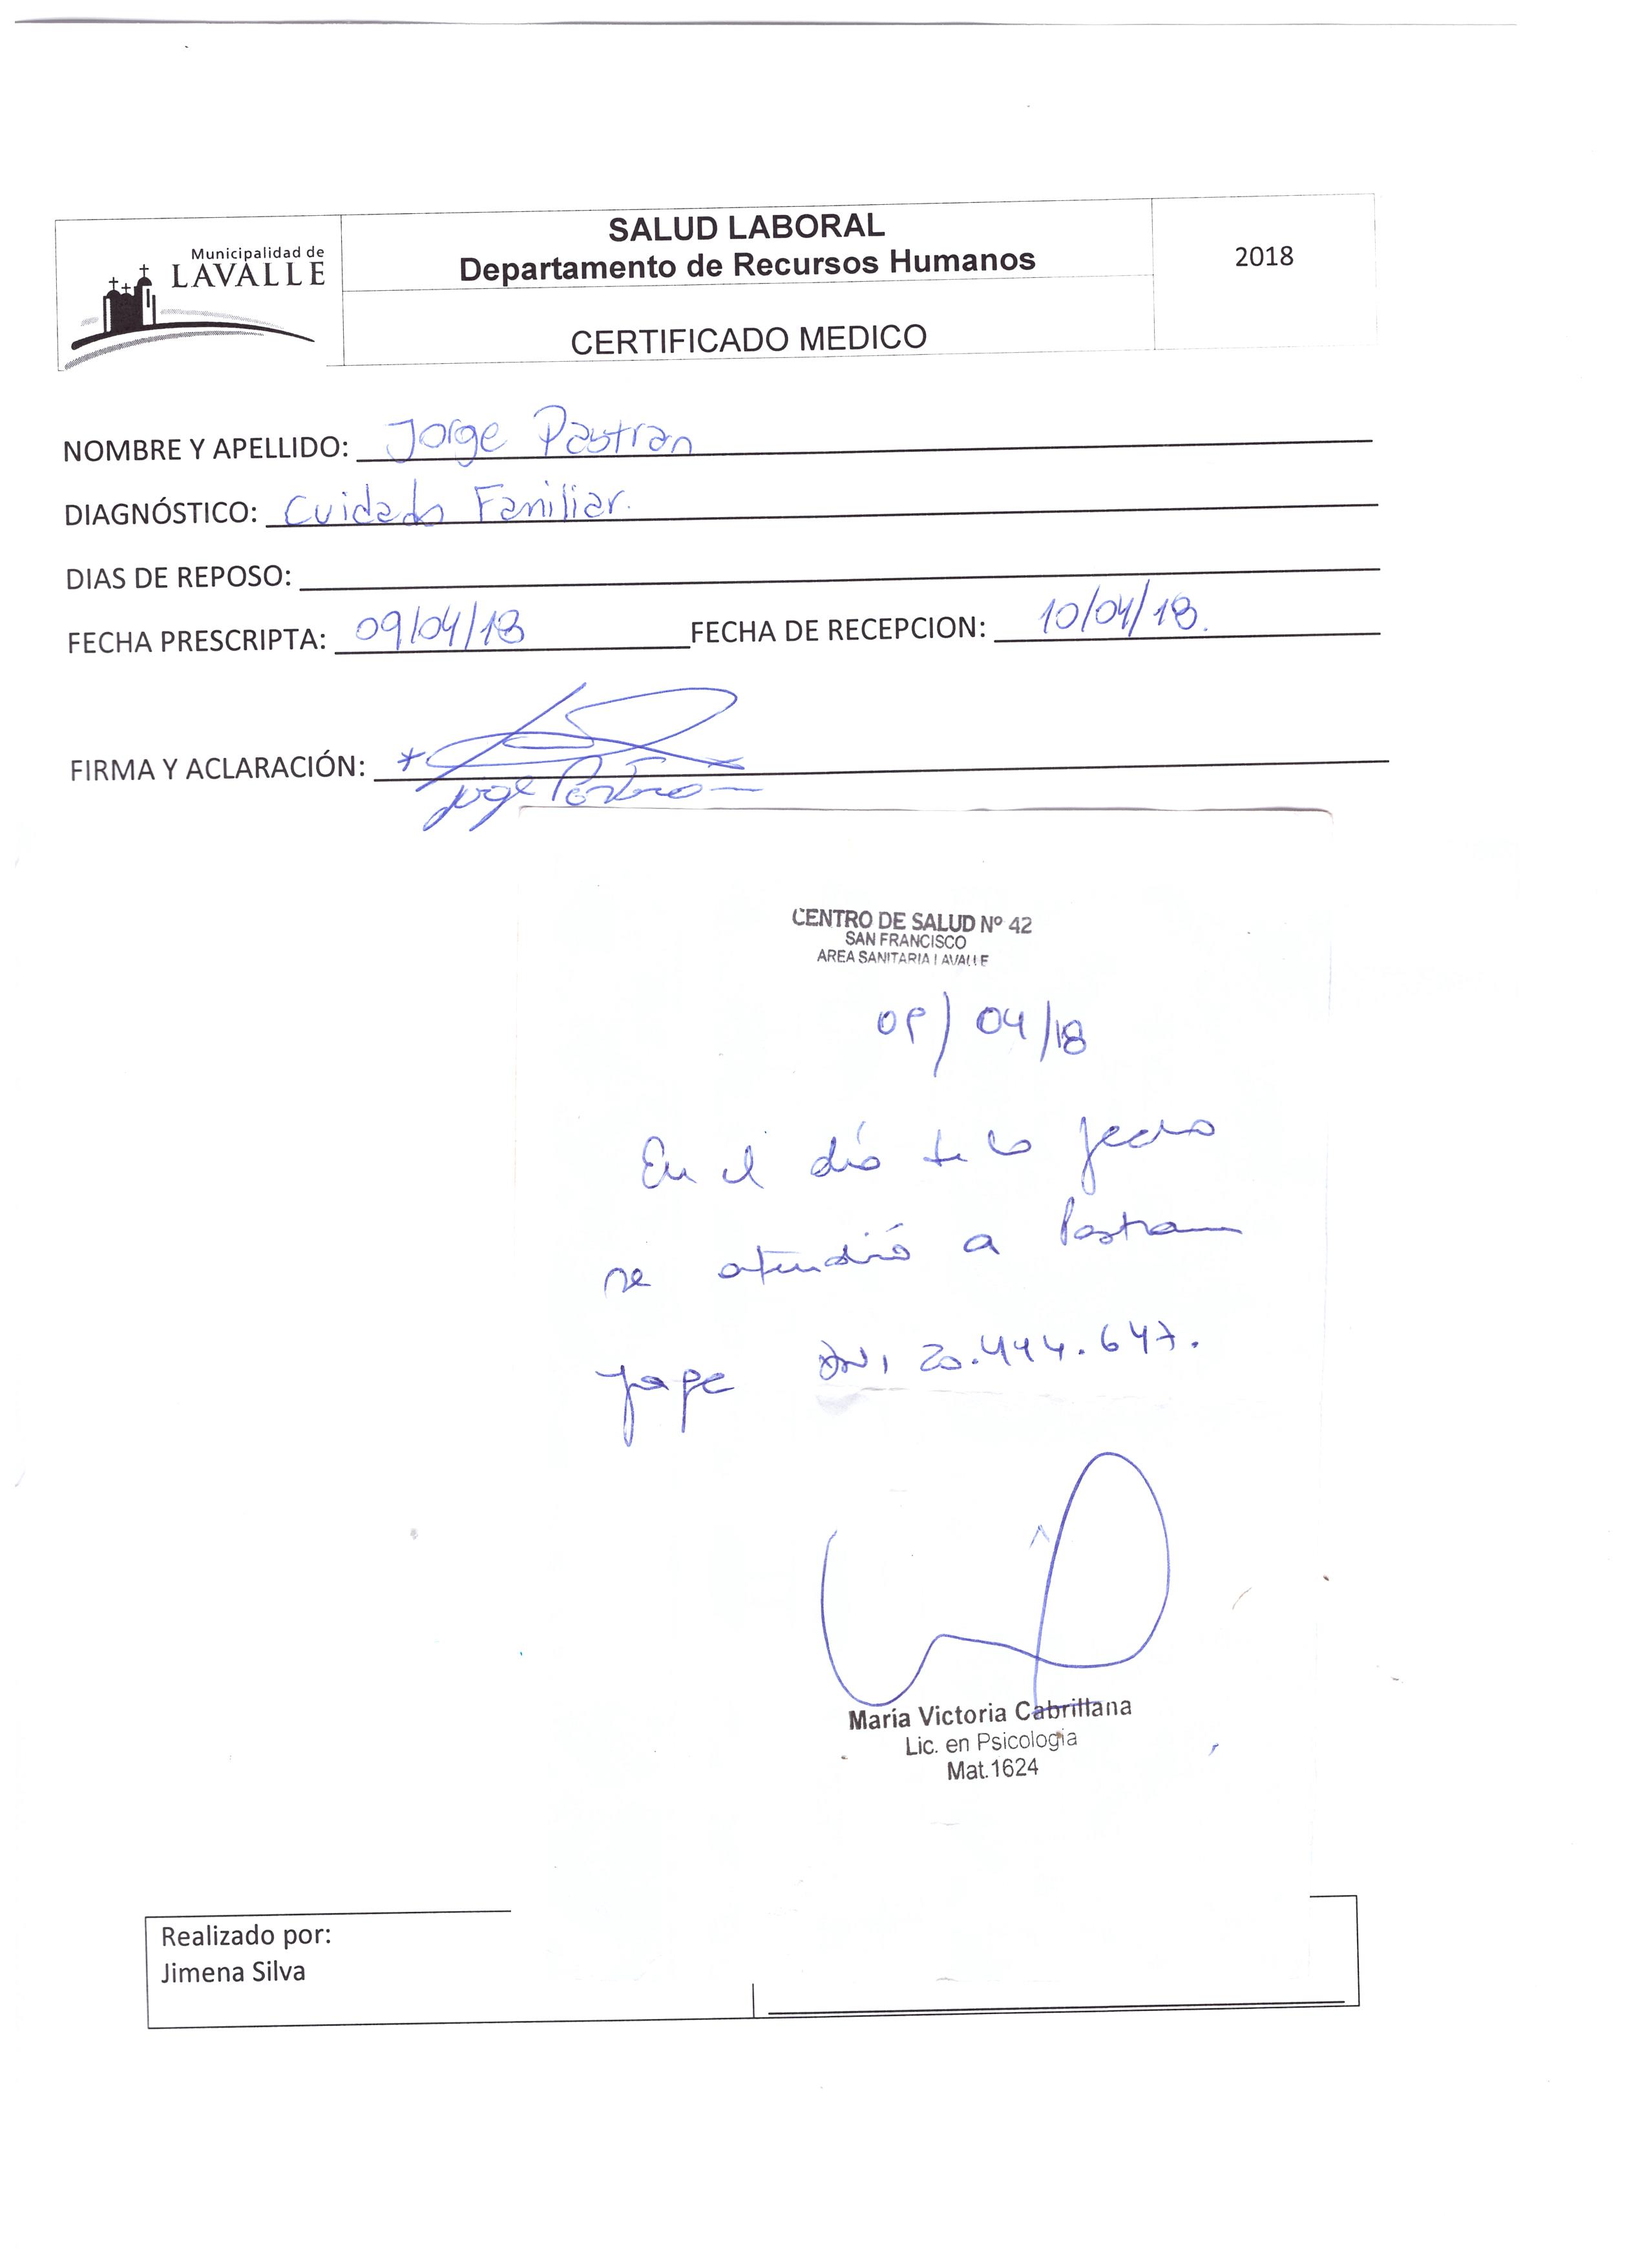 Municipalidad de
LAVALLE
SALUD LABORAL
Departamento de Recursos Humanos
CERTIFICADO MEDICO
2018
NOMBRE Y APELLIDO: Jorge Pastran
DIAGNÓSTICO: Cuidado Familiar.
DIAS DE REPOSO:
FECHA PRESCRIPTA: 09/04/18 FECHA DE RECEPCION: 10/04/18.
FIRMA Y ACLARACIÓN:
Jorge Pastran
CENTRO DE SALUD Nº 42
SAN FRANCISCO
AREA SANITARIA LAVALLE
09/04/18
En el día de la fecha
se atendió a Pastran
Jorge DNI 20.444.647.
María Victoria Cabrillana
Lic. en Psicología
Mat.1624
Realizado por:
Jimena Silva